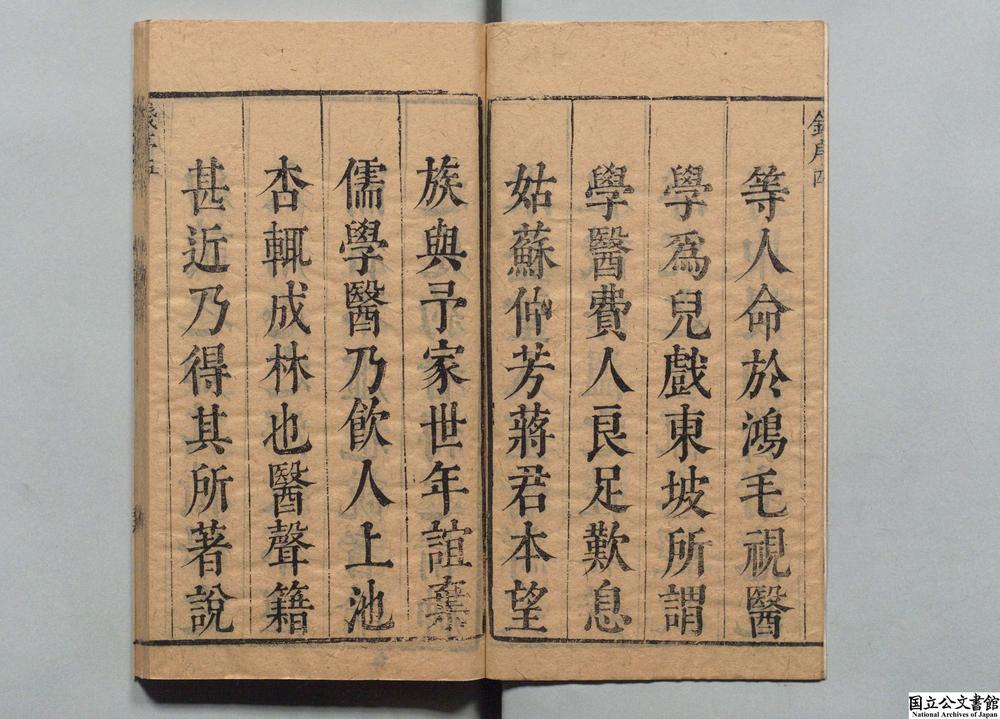 等人命於鴻毛視醫
學爲兒戲東坡所謂
學醫費人良足歎息
姑蘇仲芳蔣君本望
族與予家世年誼棄
儒學醫乃飲人上池
杏輒成林也醫聲籍
甚近乃得其所著說
国立公文書館
National Archives of Japan